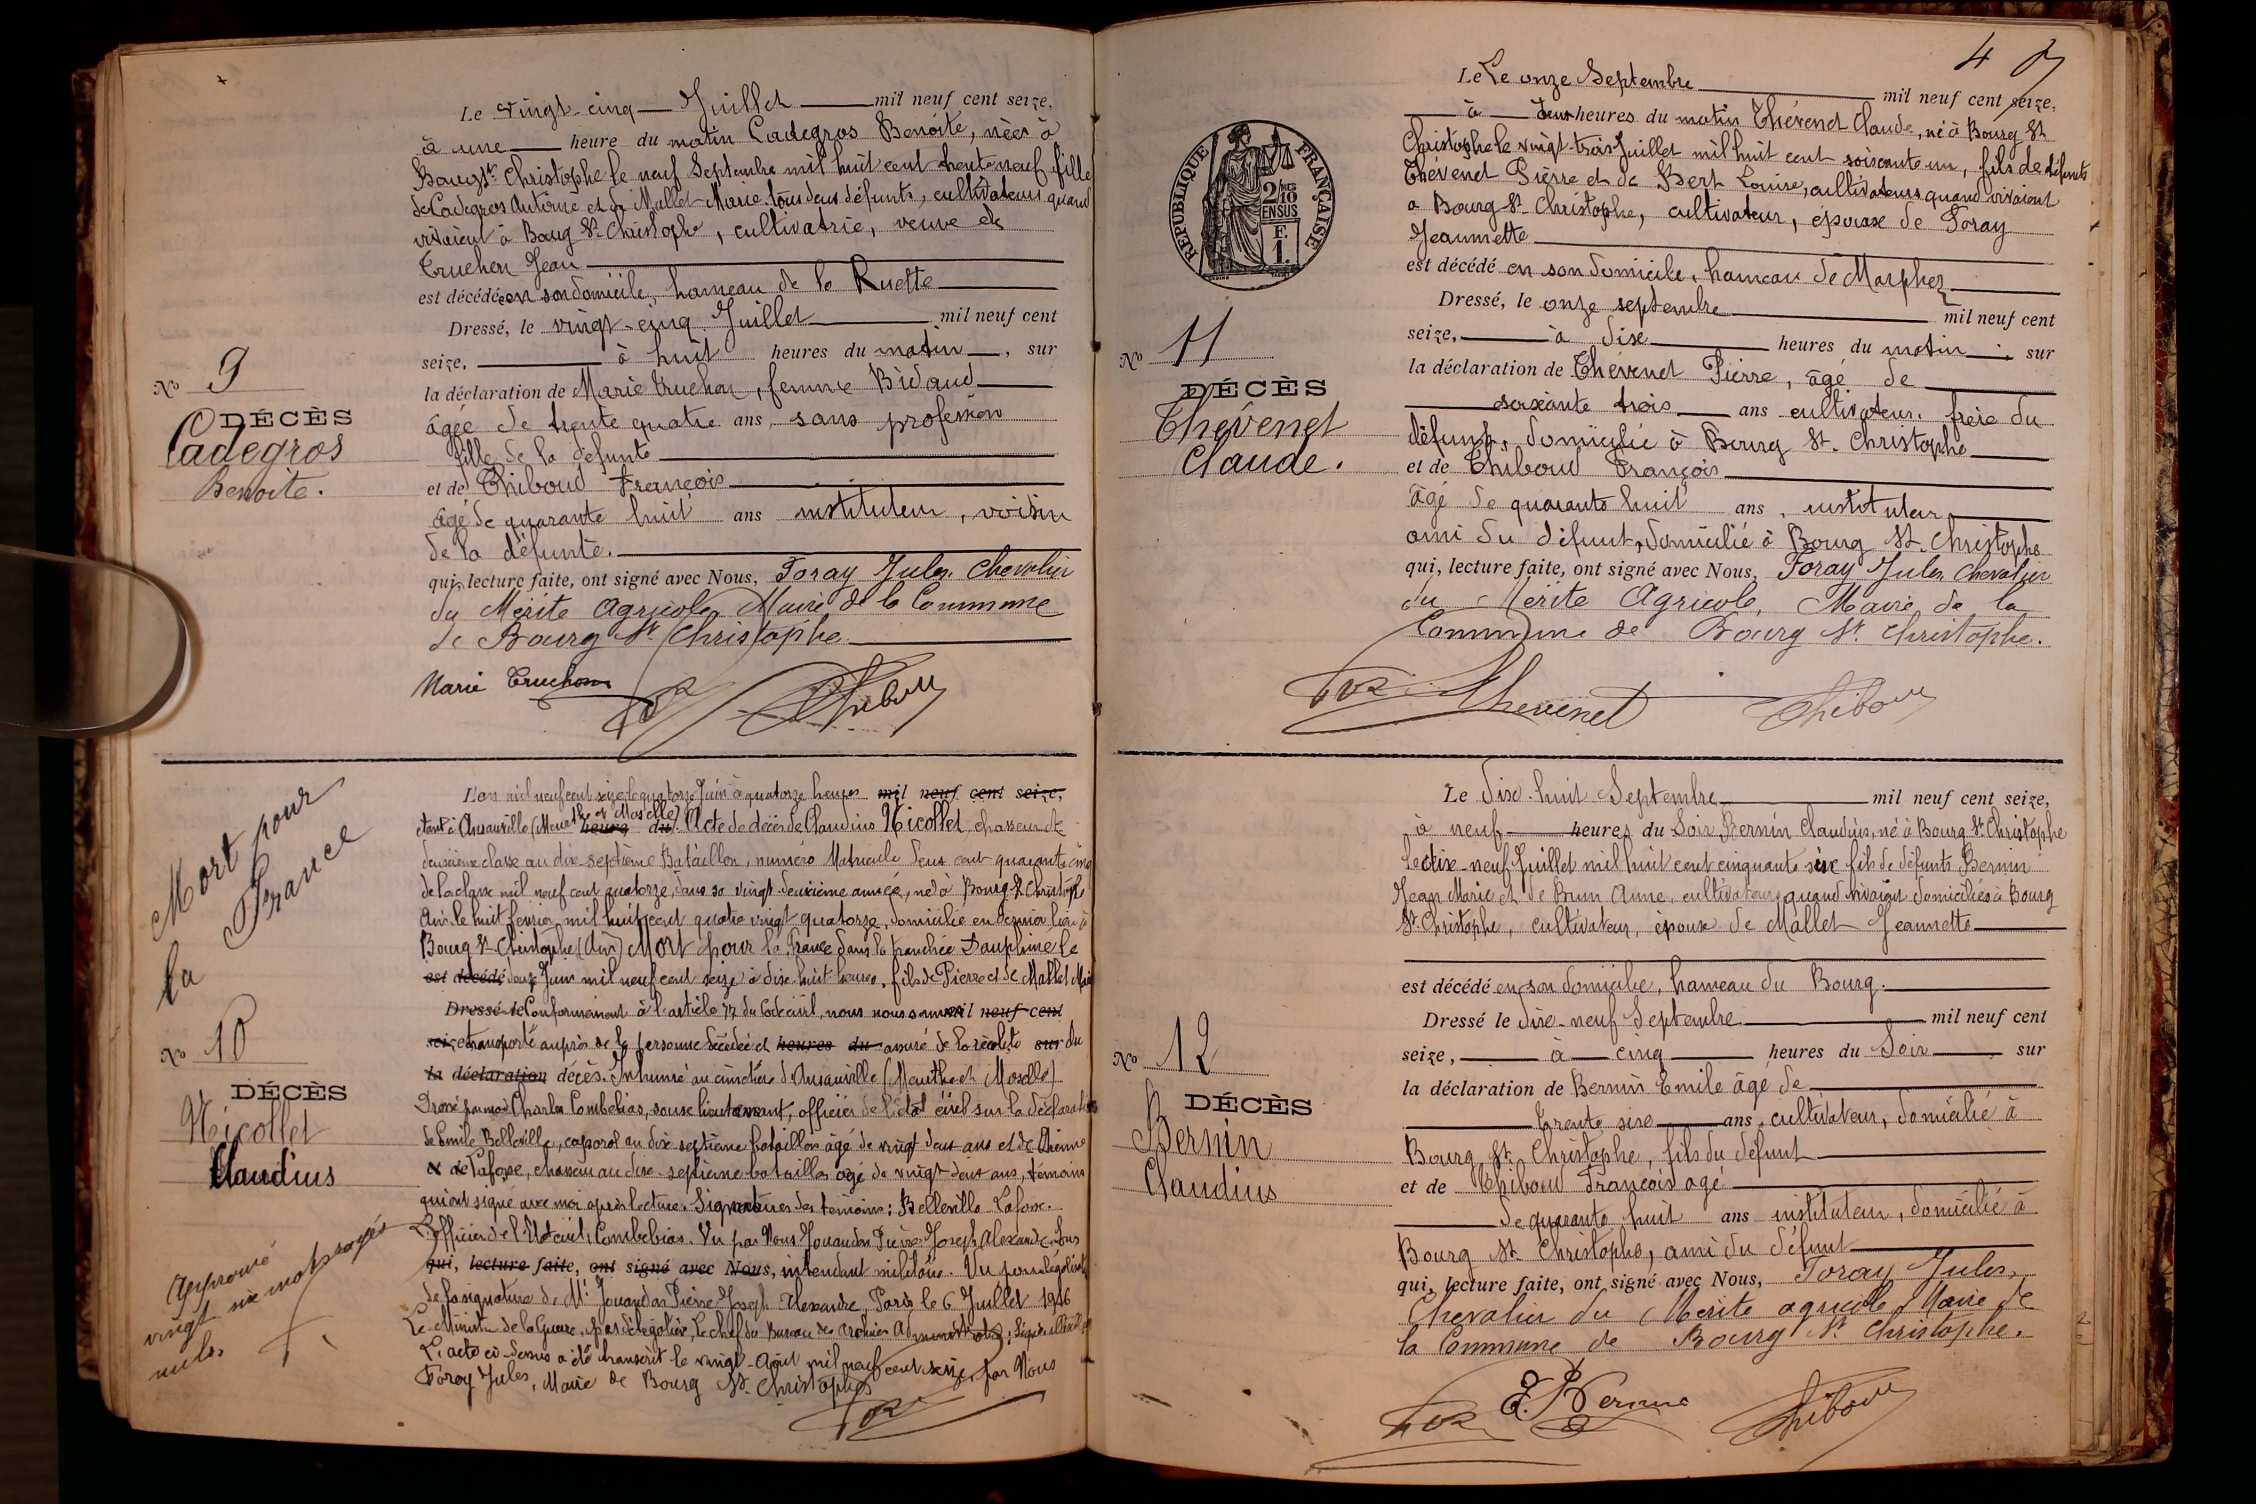 Le vingt-cinq Juillet mil neuf cent seize,
à une heure du matin Cadegros Benoite, nées à
Bourg St Christophe le neuf Septembre mil huit cent trente neuf fille
de Cadegros Antoine et de Mallet Marie tous deux défunts, cultivateurs quand
vivaient à Bourg St Christophe, cultivatrice, veuve de
Truchon Jean
est décédée en son domicile, hameau de la Ruette
Dressé, le vingt-cinq Juillet mil neuf cent
seize, à huit heures du matin, sur
la déclaration de Marie Truchon, femme Bidaud
âgée de trente quatre ans, sans profession
fille de la défunte
et de Thiboud François
âgé de quarante huit ans instituteur, voisin
de la défunte.
qui, lecture faite, ont signé avec Nous, Foray Jules Chevalier
du Mérite Agricole, Maire de la Commune
de Bourg St Christophe
Marie Truchon Thiboud
No 9
DÉCÈS
Cadegros
Benoite.
Mort pour
la France
No 10
DÉCÈS
Nicollet
Claudius
Approuvé
vingt six mots rayés
nuls.
L'an mil neuf cent seize le quatorze Juin à quatorze heures mil neuf cent seize,
étant à Ansauville (Meurthe et Moselle) heure du Acte de décès de Claudius Nicollet chasseur de
deuxième classe au dix-septième Bataillon, numéro Matricule deux cent quarante cinq
de la classe mil neuf cent quatorze, dans sa vingt-deuxième année, né à Bourg St Christophe
Ain le huit fevrier mil huit cent quatre vingt quatorze, domicilié en dernier lieu à
Bourg St Christophe (Ain) Mort pour la France dans la tranchée Dauphine le
est décédé douze Juin mil neuf cent seize à dix huit heures, fils de Pierre et de Mallet Marie
Dressé le Conformément à l'article 77 du Code civil, nous nous sommes mil neuf cent
seize transporté auprès de la personne décédée et heures du assuré de la réalité sur du
la déclaration décès. Inhumé au cimetière d'Ansauville (Meurthe et Moselle)
Dressé par moi Charles Combebias, sous lieutenant, officier de l'état civil sur la déclaration
de Emile Belleville, caporal au dix septième bataillon âgé de vingt deux ans et de Etienne
de Lafosse, chasseur au dix-septième bataillon âgé de vingt deux ans, témoins
qui ont signé avec moi après lecture. Signatures des témoins: Belleville Lafosse.
L'officier de l'Etat civil, Combebias. Vu par Nous Jouandon Pierre Joseph Alexandre, Sous
qui, lecture faite, ont signé avec Nous, intendant militaire. Vu pour légalisation
de la signature de Mr Jouandon Pierre Joseph Alexandre, Paris le 6 Juillet 1916
Le Ministre de la Guerre, par délégation, Le chef du Bureau des archives Administratives, Signé: illisible
L'acte ci-dessus a été transcrit le vingt Août mil neuf cent seize, par Nous
Foray Jules, Maire de Bourg St Christophe
4
Le Le onze Septembre mil neuf cent seize,
à deux heures du matin Thévenet Claude, né à Bourg St
Christophe le vingt-trois Juillet mil huit cent soixante un, fils de défunts
Thévenet Pierre et de Bert Louise, cultivateurs quand vivaient
a Bourg St Christophe, cultivateur, époux de Foray
Jeannette
est décédé en son domicile, hameau de Marphez
Dressé, le onze septembre mil neuf cent
seize, à dix heures du matin, sur
la déclaration de Thévenet Pierre, âgé de
soixante trois ans cultivateur, frère du
défunt, domicilié à Bourg St. Christophe
et de Thiboud François
âgé de quarante huit ans, instituteur
ami du défunt, domicilié à Bourg St. Christophe
qui, lecture faite, ont signé avec Nous, Foray Jules Chevalier
du Mérite Agricole, Maire de la
Commune de Bourg St. Christophe.
Thevenet Thiboud
RÉPUBLIQUE FRANÇAISE
2/10 EN SUS
F.
1.
No 11
DÉCÈS
Thévenet
Claude.
Le dix-huit Septembre mil neuf cent seize,
à neuf heures du Soir Bernin Claudius, né à Bourg St Christophe
le dix-neuf Juillet mil huit cent cinquante six fils de défunts Bernin
Jean Marie et de Brun Anne, cultivateurs quand vivaient domiciliés à Bourg
St. Christophe, cultivateur, époux de Mallet Jeannette
est décédé en son domicile, hameau du Bourg.
Dressé le dix-neuf Septembre mil neuf cent
seize, à cinq heures du Soir sur
la déclaration de Bernin Emile âgé de
trente six ans, cultivateur, domicilié à
Bourg St Christophe, fils du défunt
et de Thiboud François agé
de quarante huit ans instituteur, domicilié à
Bourg St Christophe, ami du défunt
qui, lecture faite, ont signé avec Nous, Foray Jules,
Chevalier du Mérite agricole, Maire de
la Commune de Bourg St Christophe.
E. Bernin Thiboud
No 12
DÉCÈS
Bernin
Claudius